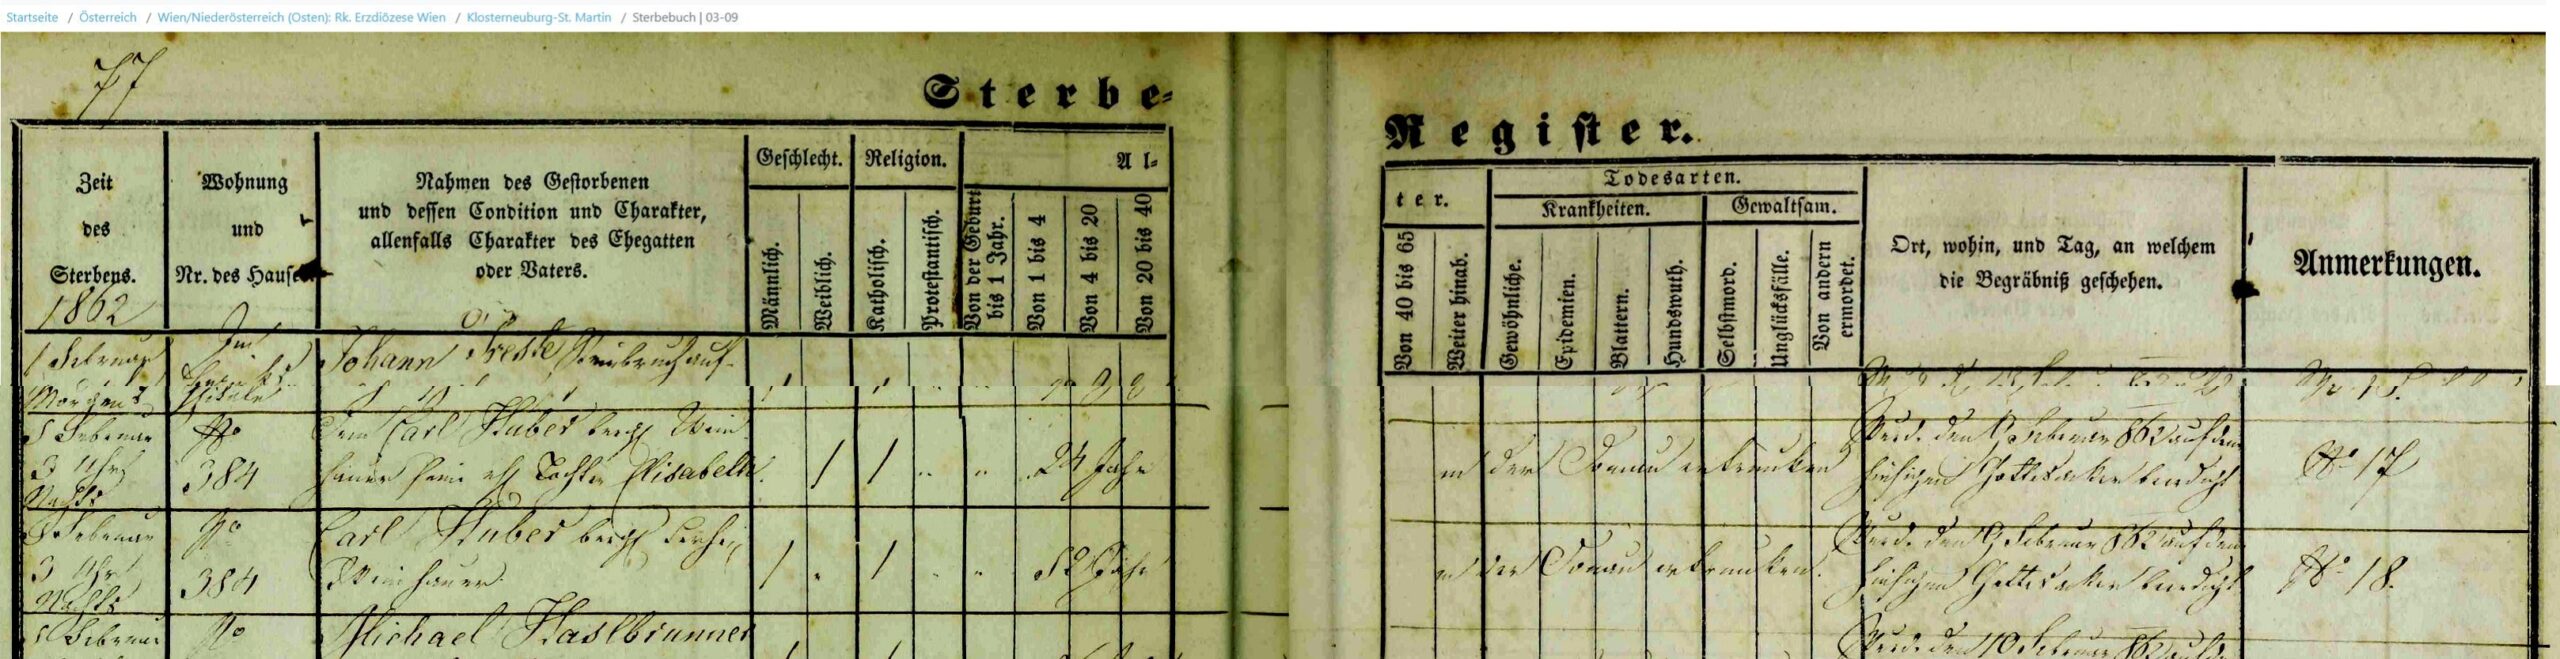 Startseite / Österreich / Wien/Niederösterreich (Osten): Rk. Erzdiözese Wien / Klosterneuburg-St. Martin / Sterbebuch | 03-09
77
Sterbe-
Register.
Zeit
des
Sterbens.
1862
Wohnung
und
Nr. des Hauses
Nahmen des Gestorbenen
und dessen Condition und Charakter,
allenfalls Charakter des Ehegatten
oder Vaters.
Geschlecht.
Männlich.
Weiblich.
Religion.
Katholisch.
Protestantisch.
Al-
Von der Geburt
bis 1 Jahr.
Von 1 bis 4
Von 4 bis 20
Von 20 bis 40
ter.
Von 40 bis 65
Weiter hinab.
Todesarten.
Krankheiten.
Gewöhnliche.
Epidemien.
Blattern.
Hundswuth.
Gewaltsam.
Selbstmord.
Unglücksfälle.
Von andern
ermordet.
Ort, wohin, und Tag, an welchem
die Begräbniß geschehen.
Anmerkungen.
Februar
Morgens
Im
Johann
Februar
3 Uhr
Nachts
No
384
Dem Carl Huber bürgl Wein
hauer seine Tochter Elisabeth.
/ /
24 Jahr
in der Donau ertrunken
Wurd. den 9 Februar 862 auf dem
hiesigen Gottesacker beerdigt
No 17
Februar
3 Uhr
Nachts
No
384
Carl Huber bürgl
Weinhauer.
/ /
Jahr
in der Donau ertrunken.
Wurd. den 9 Februar 862 auf dem
hiesigen Gottesacker beerdigt
No 18.
Februar
No
Michael Haslbrunner
Wurd. den 10 Februar 862 auf dem